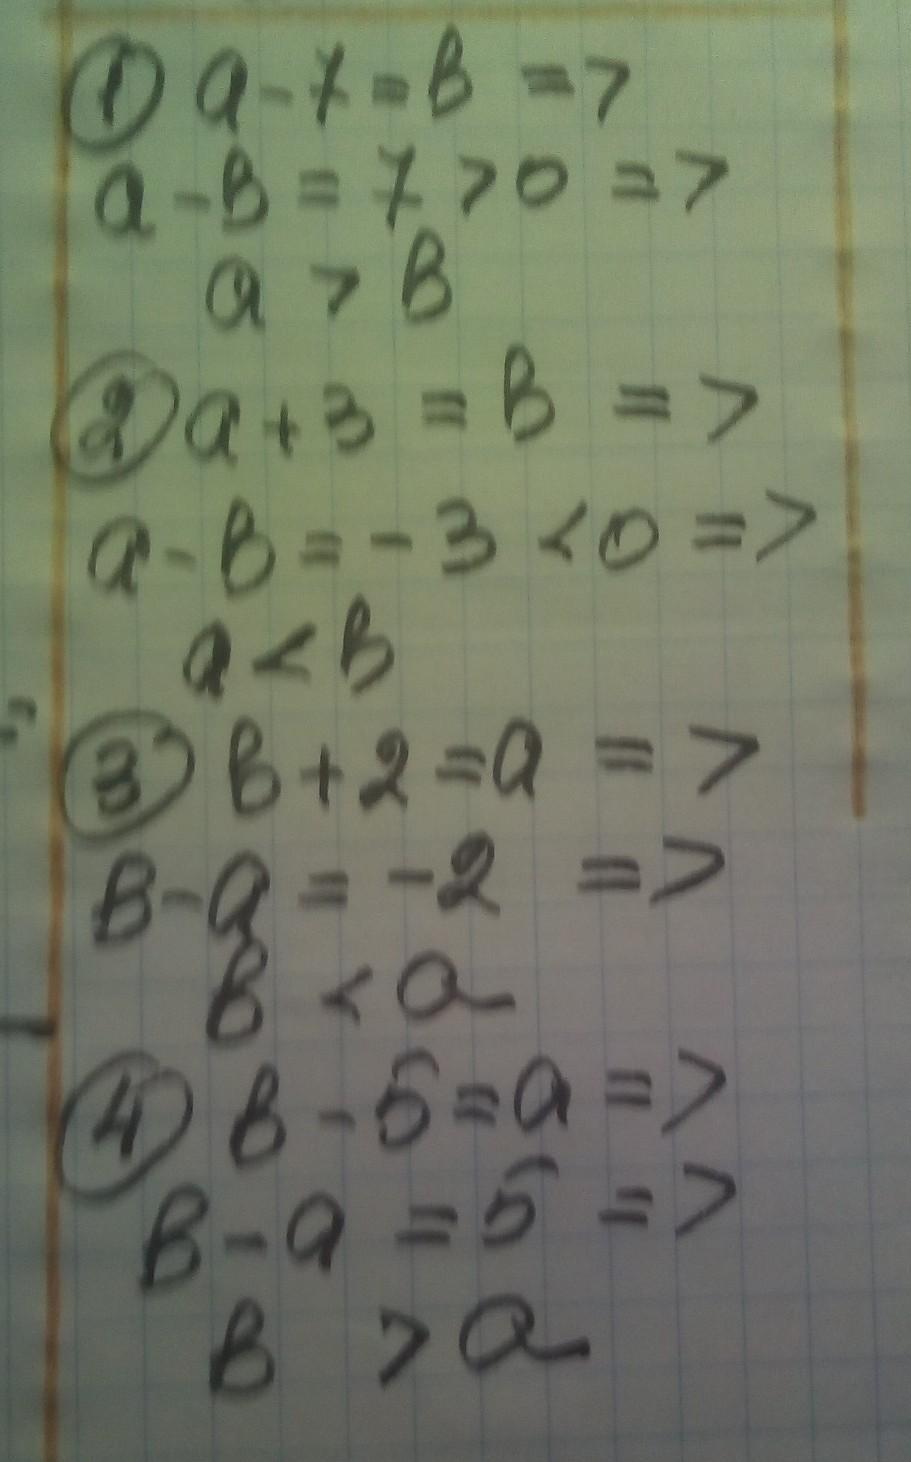 ① a - 7 = b =>
a - b = 7 > 0 =>
a > b
② a + 3 = b =>
a - b = - 3 < 0 =>
a < b
③ b + 2 = a =>
b - a = - 2 =>
b < a
④ b - 5 = a =>
b - a = 5 =>
b > a